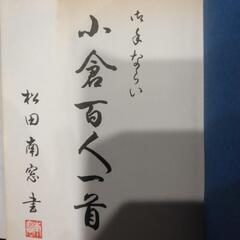 御手ならい
小倉百人一首
松田南窓書